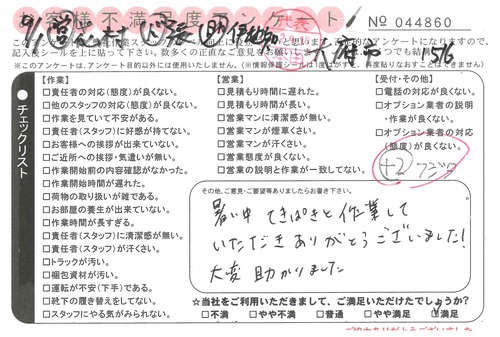 お客様不満足度アンケート
No 044860
※このアンケートは、アンケート目的以外には使用いたしません。
チェックリスト
【作業】
□責任者の対応(態度)が良くない。
□他のスタッフの対応(態度)が良くない。
□作業を見ていて不安がある。
□責任者(スタッフ)に好感が持てない。
□お客様への挨拶が出来ていない。
□ご近所への挨拶・気遣いが無い。
□作業開始前の内容確認がなかった。
□作業開始時間が遅れた。
□荷物の取り扱いが雑である。
□お部屋の養生が出来ていない。
□作業時間が長すぎる。
□責任者(スタッフ)に清潔感が無い。
□責任者(スタッフ)が汗くさい。
□トラックが汚い。
□梱包資材が汚い。
□運転が不安(下手)である。
□靴下の履き替えをしてない。
□スタッフにやる気がみられない。
【営業】
□見積もり時間に遅れた。
□見積もり時間が長い。
□営業マンに清潔感が無い。
□営業マンが煙草くさい。
□営業マンが汗くさい。
□営業態度が良くない。
□営業の説明と作業が一致してない。
【受付・その他】
□電話の対応が良くない。
□オプション業者の説明
・作業が良くない。
□オプション業者の対応
(態度)が良くない。
+2 フジタ
その他、ご意見・ご要望等ありましたらお書き下さい。
暑い中 てきぱきと作業して
いただきありがとうございました!
大変 助かりました
☆当社をご利用いただきまして、ご満足いただけたでしょうか?
□不満 □やや不満 □普通 □やや満足 ☑満足
ご協力ありがとうございました